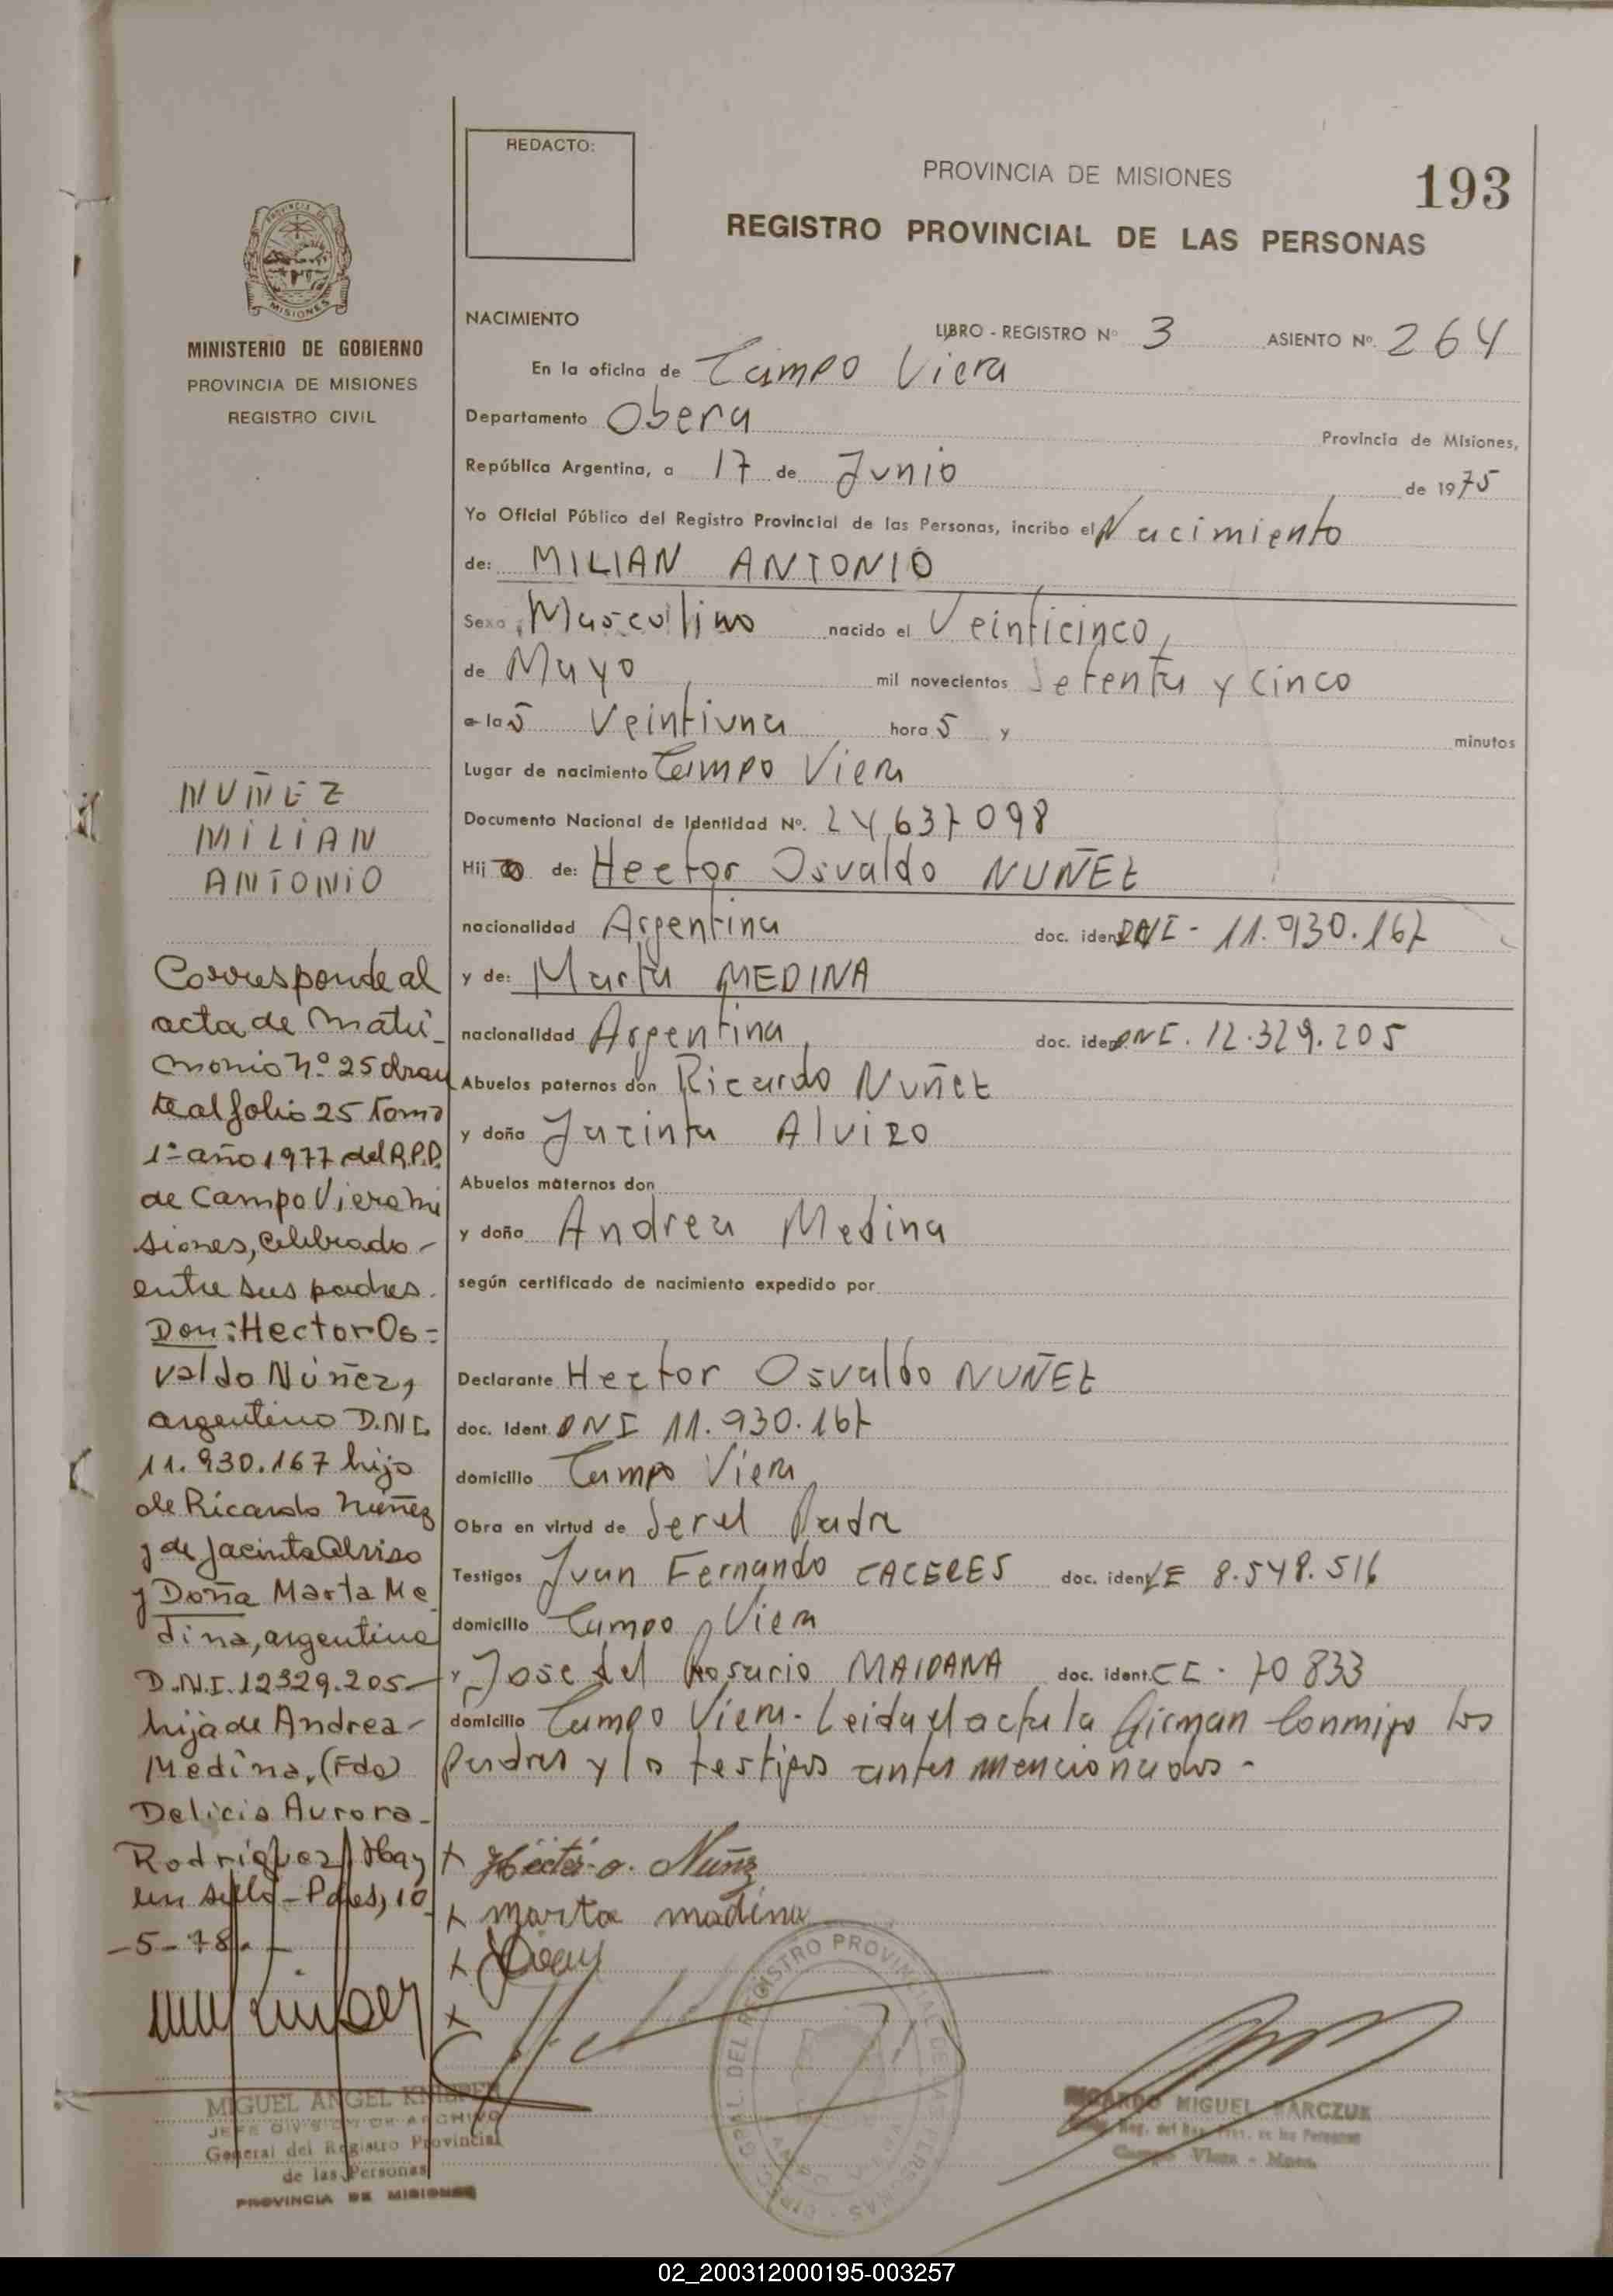 REDACTO:
PROVINCIA DE MISIONES
193
REGISTRO PROVINCIAL DE LAS PERSONAS
MISIONES
MINISTERIO DE GOBIERNO
PROVINCIA DE MISIONES
REGISTRO CIVIL
NACIMIENTO
LIBRO - REGISTRO Nº 3 ASIENTO Nº. 264
En la oficina de Campo Viera
Departamento Obera
Provincia de Misiones,
República Argentina, a 17 de Junio de 1975
Yo Oficial Público del Registro Provincial de las Personas, incribo el Nacimiento
de: MILIAN ANTONIO
Sexo Masculino nacido el Veinticinco,
de Mayo mil novecientos Setenta y Cinco
a las Veintiuna horas y minutos
Lugar de nacimiento Campo Viera
Documento Nacional de Identidad Nº. 24,637098
Hijo de: Hector Osvaldo NUÑEZ
nacionalidad Argentina doc. ident. DNI - 11.930.167
y de: Marta MEDINA
nacionalidad Argentina, doc. ident. DNI. 12.329.205
Abuelos paternos don Ricardo Nuñez
y doña Jacinta Alvizo
Abuelos maternos don
y doña Andrea Medina
según certificado de nacimiento expedido por
Declarante Hector Osvaldo NUÑEZ
doc. Ident. DNI 11.930.167
domicilio Campo Viera
Obra en virtud de Ser el Padre
Testigos Juan Fernando CACERES doc. ident. LE 8.548.516
domicilio Campo Viera
y Jose del Rosario MAIDANA doc. ident. CI - 70833
domicilio Campo Viera - Leida el acta la Firman Conmigo los
Padres y los testigos antes mencionados -
+ Hector o. Nuñz
+ marta madina
+
+
NUÑEZ
MILIAN
ANTONIO
Corresponde al
acta de Matri-
monio nº 25 obran
te al folio 25 Tomo
1º año 1977 del R.P.P.
de Campo Viera Mi
siones, celebrado -
entre sus padres.
Don: Hector Os=
valdo Núñez,
argentino D.N.I.
11.930.167 hijo
de Ricardo Nuñez
y de Jacinta Alviso
y Doña Marta Me
dina, argentina
D.N.I. 12329.205-
hija de Andrea -
Medina. (Fdo)
Delicia Aurora -
Rodriguez / Hay
un sello - Pdas, 10
- 5 - 78. -
MIGUEL ANGEL KNIPPER
JEFE DIVISION DE ARCHIVO
General del Registro Provincial
de las Personas
PROVINCIA DE MISIONES
RICARDO MIGUEL BARCZUK
Campo Viera - Mnes.
02_200312000195-003257